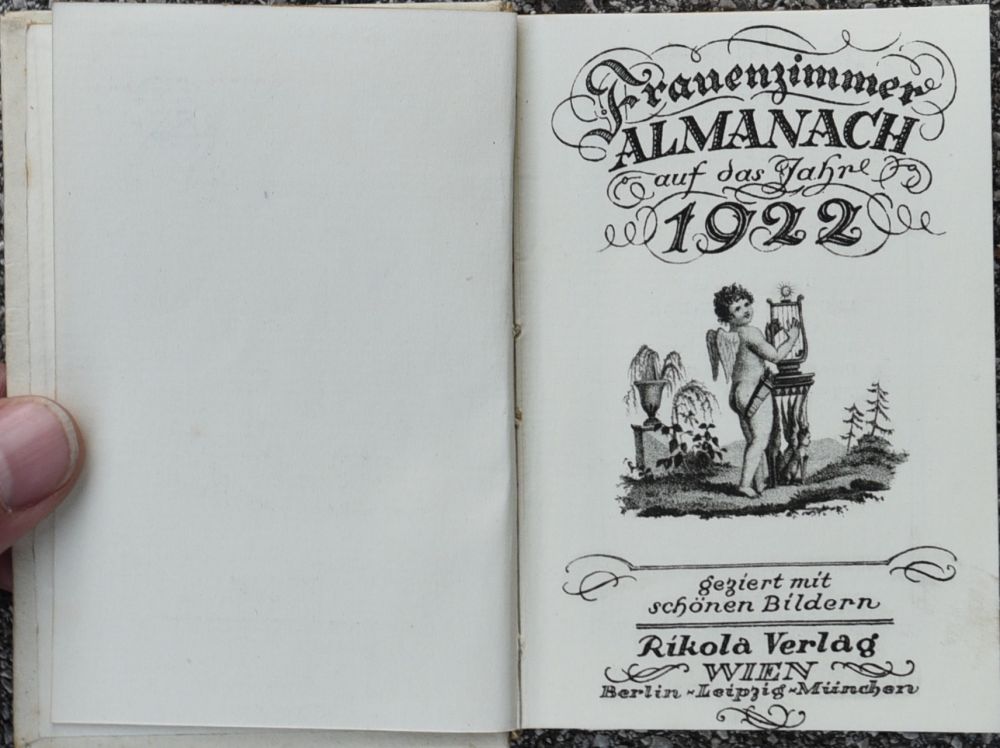 Frauenzimmer
ALMANACH
auf das Jahr
1922
geziert mit
schönen Bildern
Rikola Verlag
WIEN
Berlin - Leipzig - München